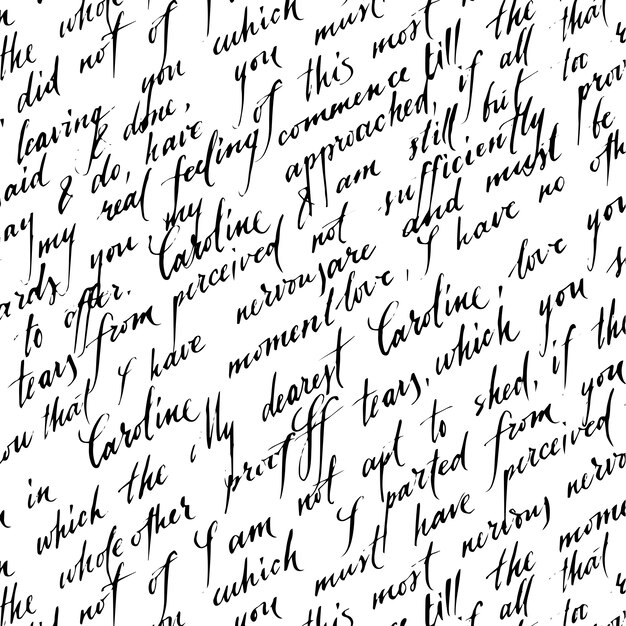 the whole
did not of which must
leaving you you the that
said & done,
ay & do, have of this most
my real feeling commence till
ards you my approached, if all too
to offer. Caroline & am still but prov
tears from perceived not sufficiently be
ou that I have nervous are and must
Caroline moment love, I have no oth
in My dearest Caroline, love you
which the proof tears, which you s
the whole other not apt to shed, if the
not of I am I parted from you
you which must have perceived
you this most nervous nervo
till the mome
if all that